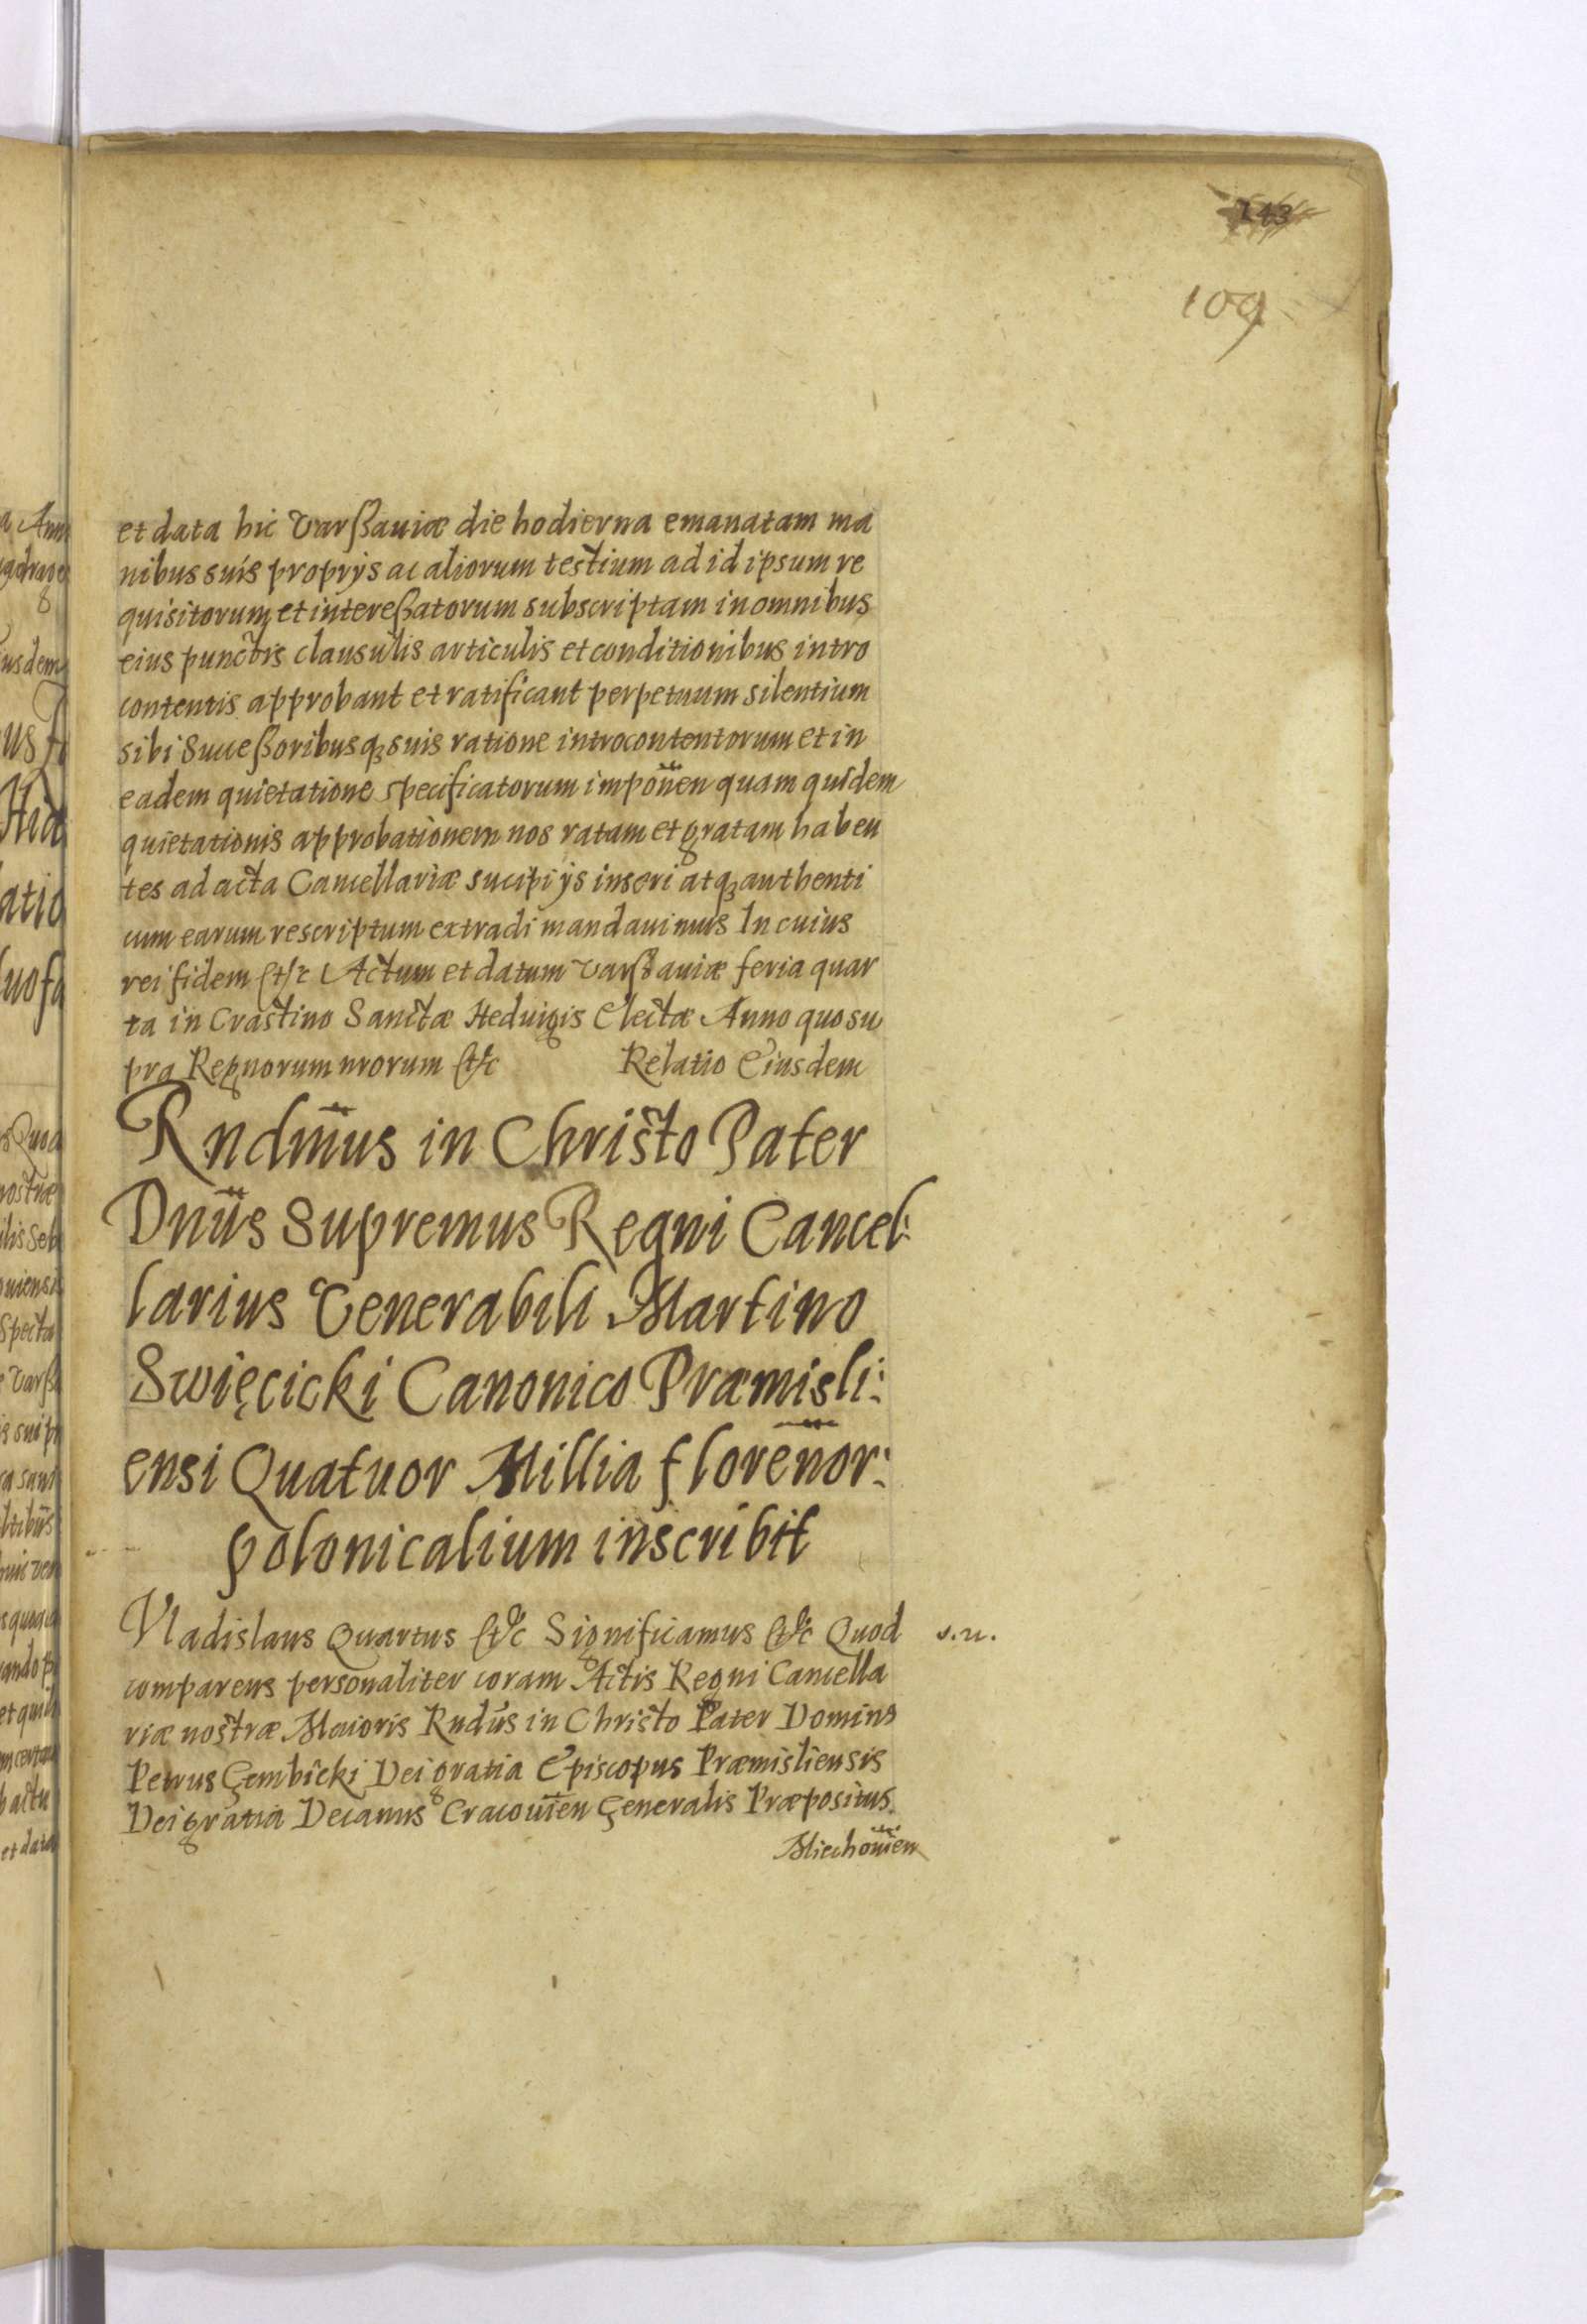 143
109
et data hic Varßauiæ die hodierna emanatam ma
nibus suis proprijs ac aliorum testium ad id ipsum re
quisitorum et intereßatorum subscriptam in omnibus
eius punctis clausulis articulis et conditionibus intro
contentis approbant et ratificant perpetuum silentium
sibi Succeßoribusq suis ratione introcontentorum et in
eadem quietatione specificatorum imponen quam quidem
quietationis approbationem nos ratam et gratam haben
tes ad acta Cancellariæ suscipi ijs inseri atq authenti
cum earum rescriptum extradi mandauimus In cuius
rei fidem etc Actum et datum Varßauiæ feria quar
ta in Crastino Sanctæ Heduigis Electæ Anno quo su
pra Regnorum nrorum etc Relatio Eiusdem
Rndmus in Christo Pater
Dnus Supremus Regni Cancel:
larius Venerabili Martino
Swięcicki Canonico Præmisli:
ensi Quatuor Millia florenor:
polonicalium inscribit
Vladislaus Quartus etc Significamus etc Quod s.n.
comparens personaliter coram Actis Regni Cancella
riæ nostræ Maioris Rndus in Christo Pater Dominus
Petrus Gembicki Dei gratia Episcopus Præmisliensis
Dei gratia Decanus Cracouien Generalis Præpositus
Miechouien